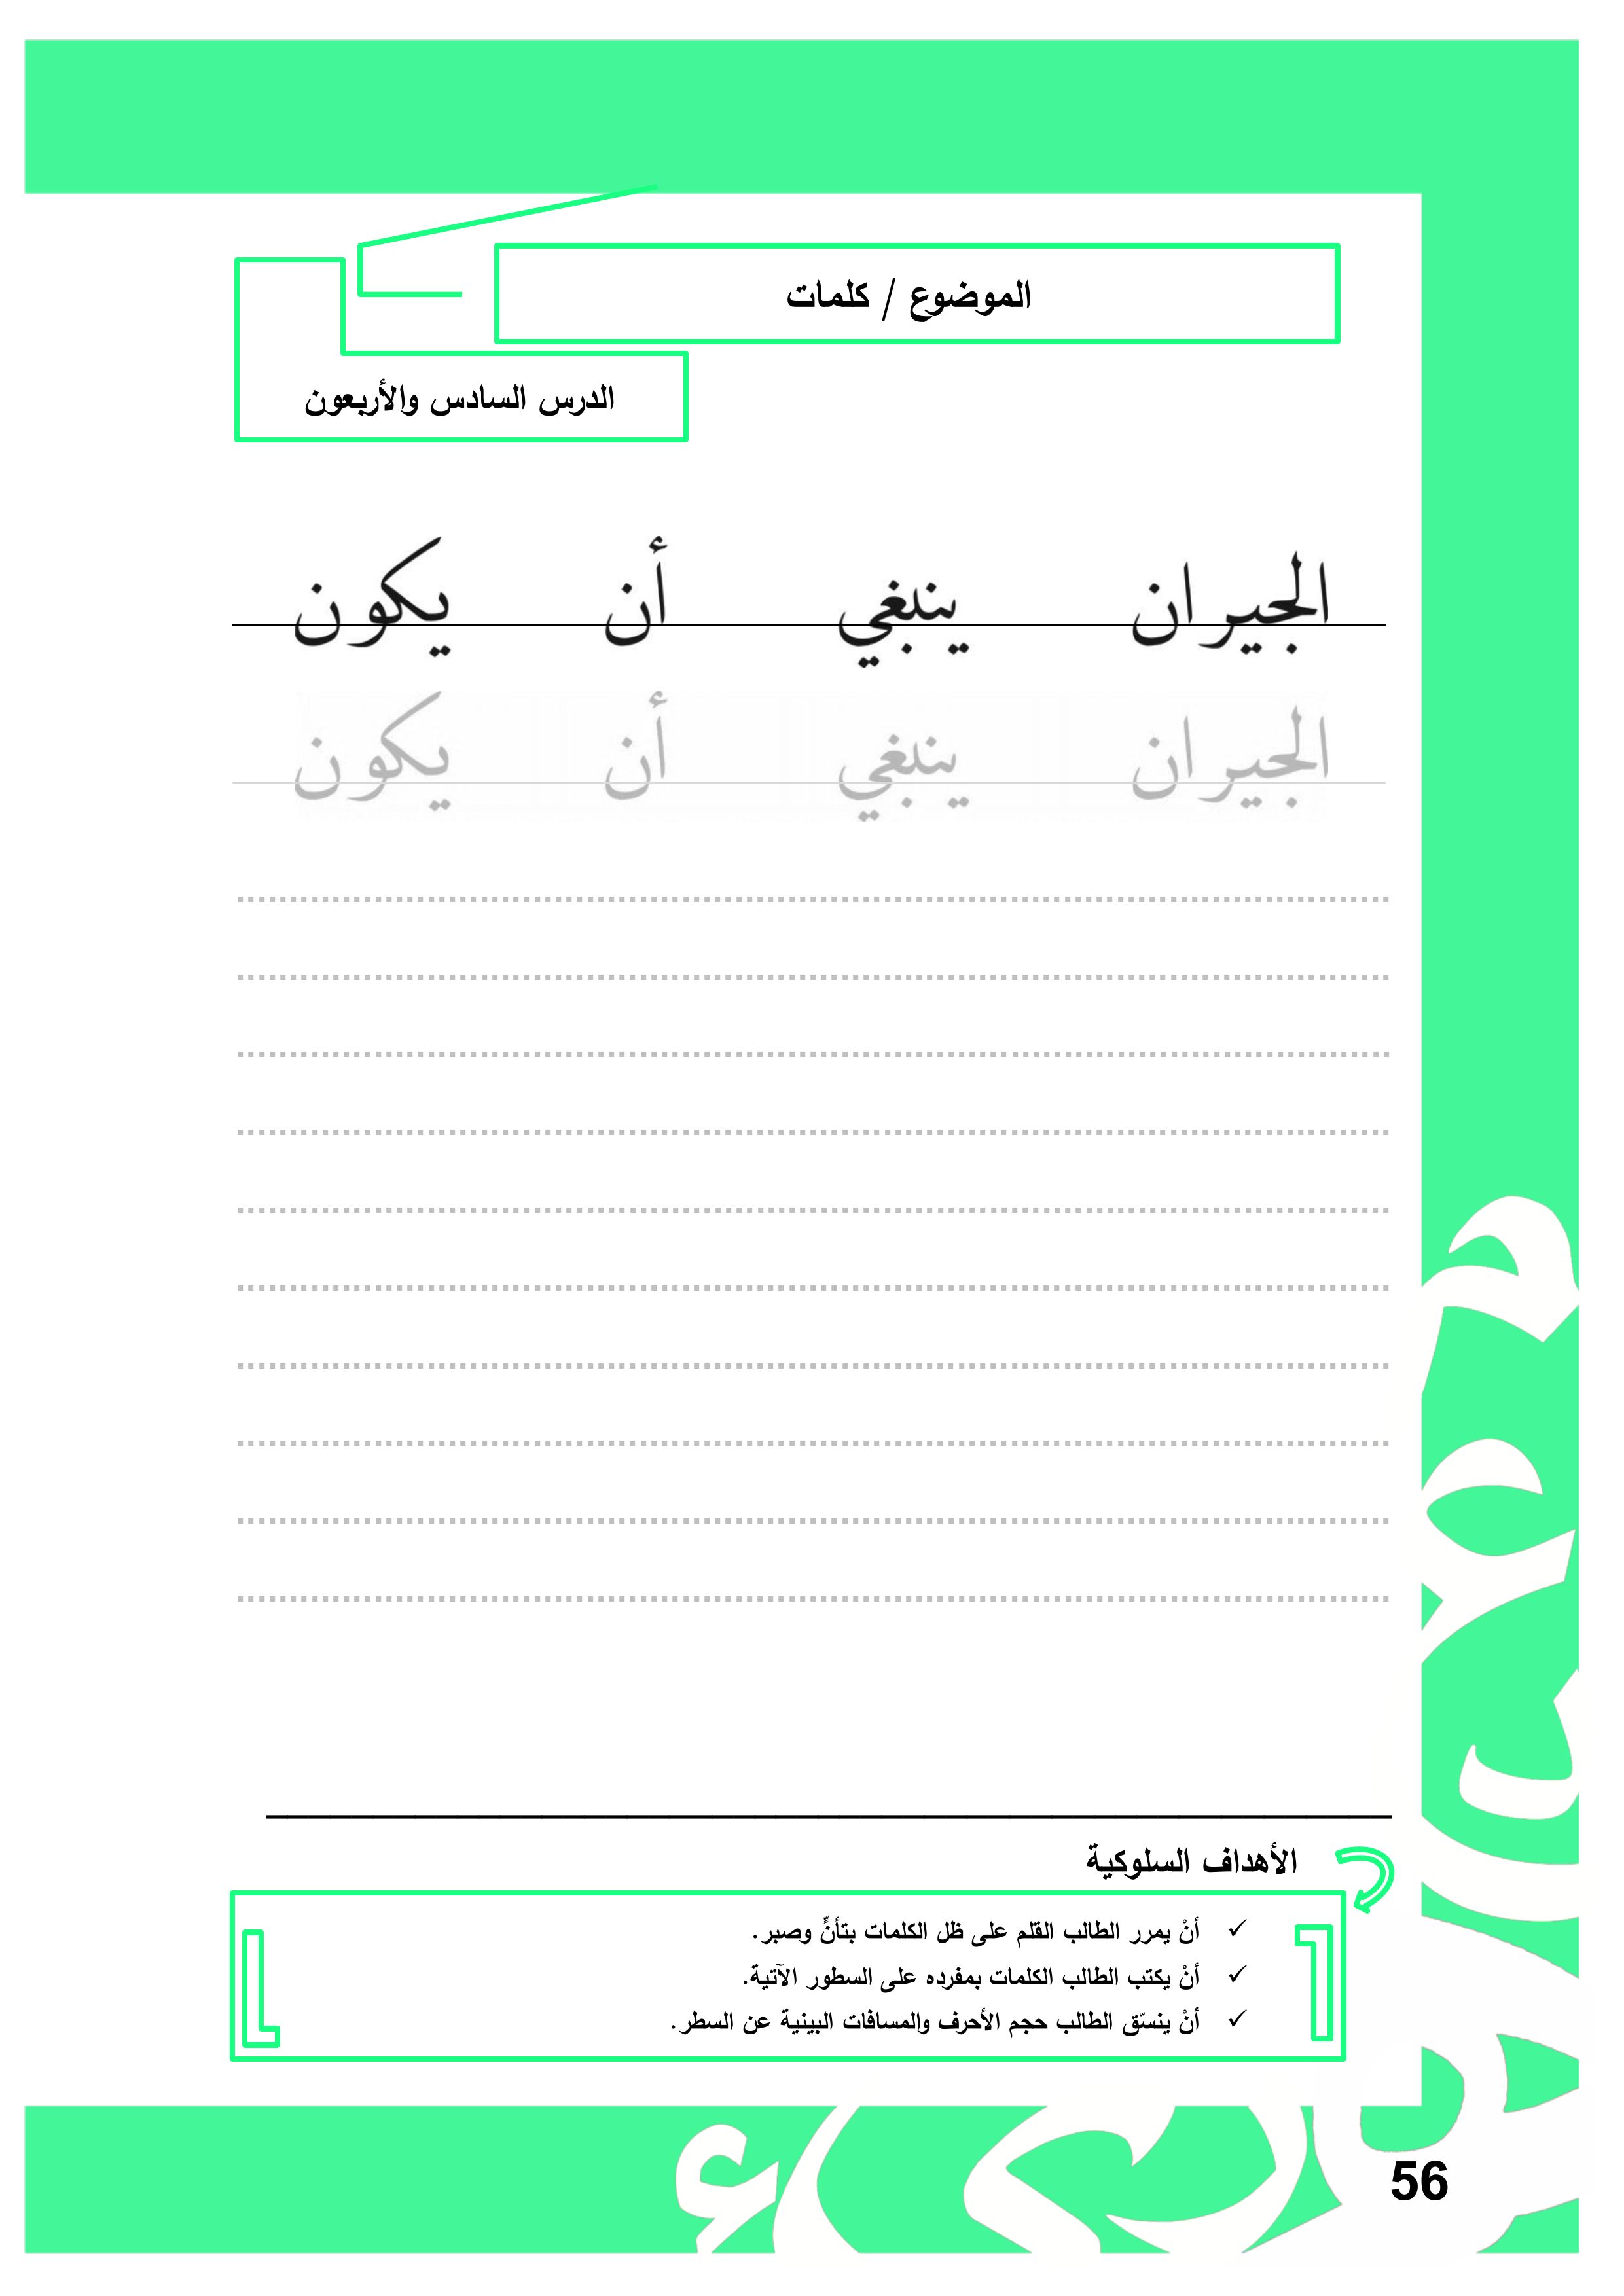 الموضوع / كلمات
الدرس السادس والأربعون
الجيران ينبغي أن يكون
الجيران ينبغي أن يكون
الأهداف السلوكية
✓ أنْ يمرر الطالب القلم على ظل الكلمات بتأنٍّ وصبر.
✓ أنْ يكتب الطالب الكلمات بمفرده على السطور الآتية.
✓ أنْ ينسّق الطالب حجم الأحرف والمسافات البينية عن السطر.
56